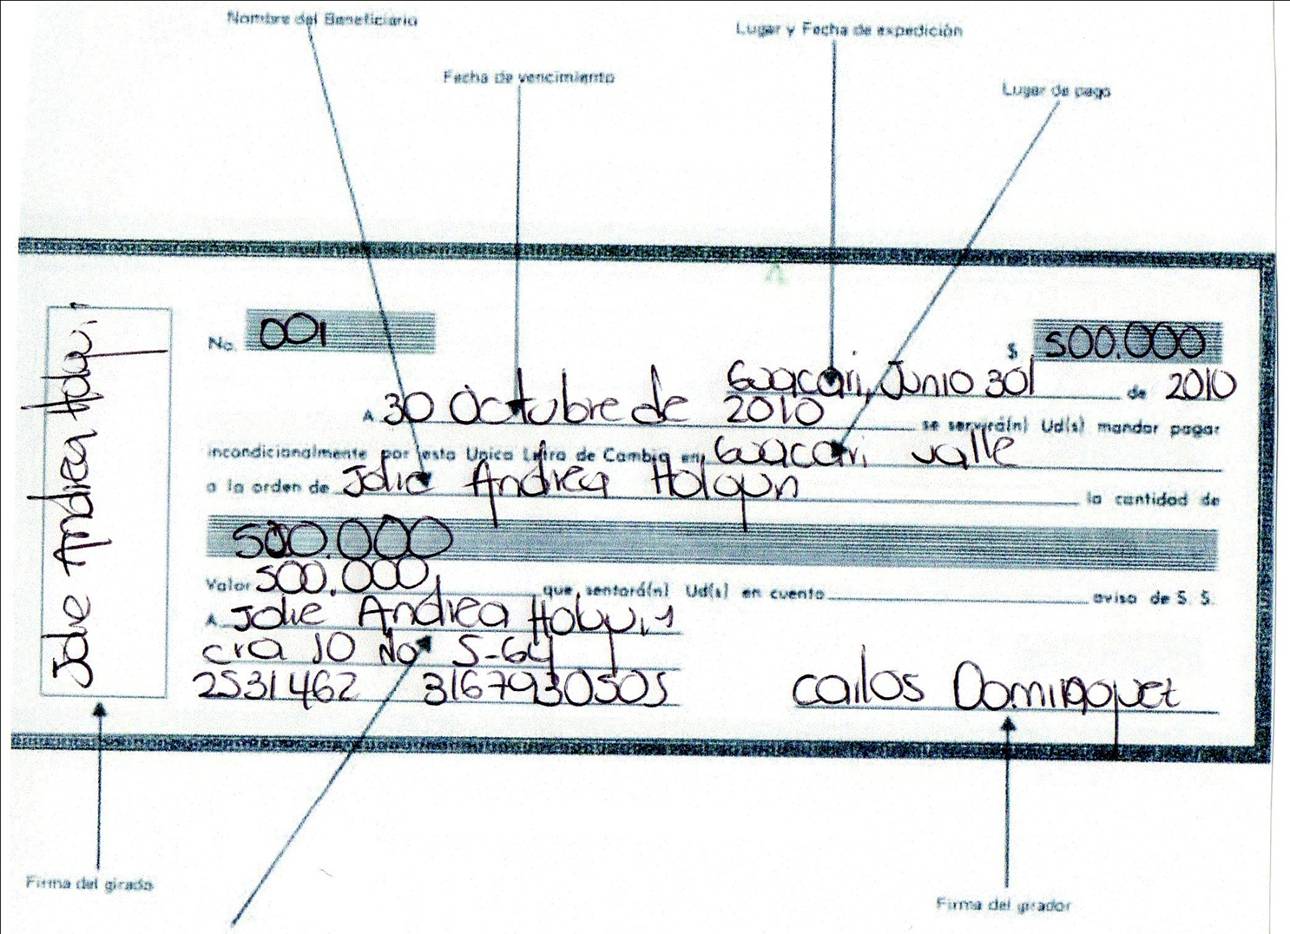 Nombre del Beneficiario
Lugar y Fecha de expedición
Fecha de vencimiento
Lugar de pago
No. 001
$ 500.000
Guacari, Junio 30 de 2010
A 30 Octubre de 2010 se servirá(n) Ud(s) mandar pagar
incondicionalmente por esta Unica Letra de Cambio en Guacari valle
a la orden de Jolie Andrea Holguin la cantidad de
500.000
Valor 500.000 que sentará(n) Ud(s) en cuenta aviso de S. S.
A Jolie Andrea Holguin
cra 10 No 5-64
2531462 3167930505
Carlos Dominguez
Jolie Andrea Holguin
Firma del girado
Firma del girador